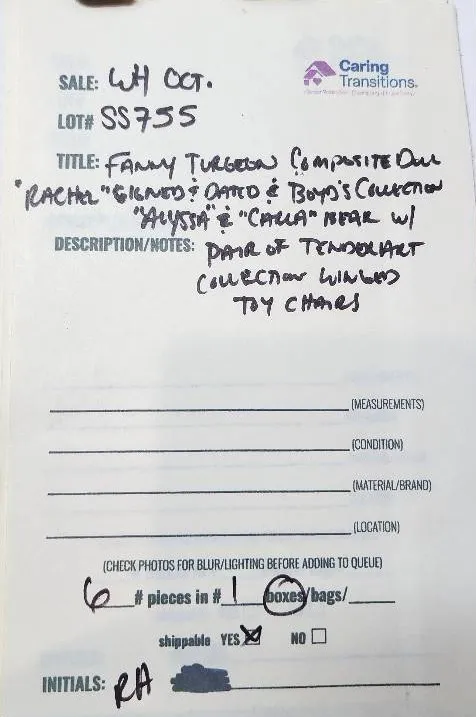 Caring
Transitions®
SALE: WH OCT.
LOT# SS755
TITLE: FANNY TURGEON COMPOSITE DOLL
"RACHEL" SIGNED & DATED & BOYD'S COLLECTION
"ALYSSA" & "CARLA" BEAR W/
DESCRIPTION/NOTES: PAIR OF TENDERART
COLLECTION WINGED
TOY CHAIRS
(MEASUREMENTS)
(CONDITION)
(MATERIAL/BRAND)
(LOCATION)
(CHECK PHOTOS FOR BLUR/LIGHTING BEFORE ADDING TO QUEUE)
6 # pieces in # 1 boxes/bags/
shippable YES NO
INITIALS: RA